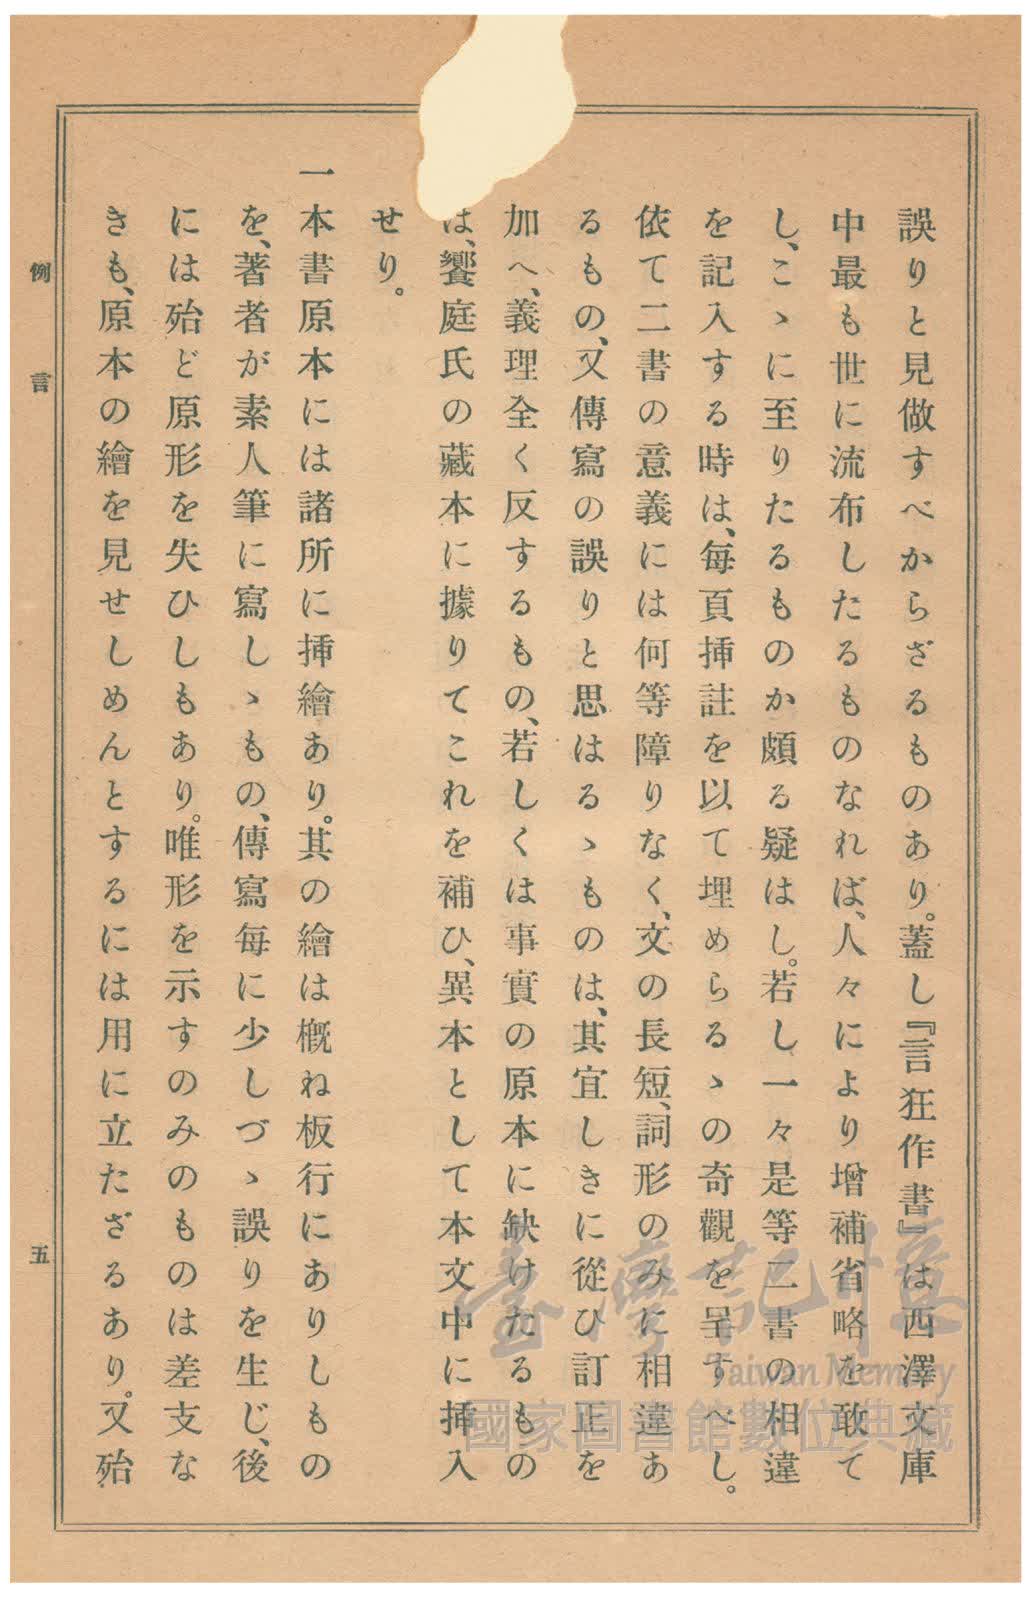 誤りと見做すべからざるものあり。蓋し『言狂作書』は西澤文庫
中最も世に流布したるものなれば、人々により增補省略を敢て
し、こゝに至りたるものか頗る疑はし。若し一々是等二書の相違
を記入する時は、每頁挿註を以て埋めらるゝの奇觀を呈すべし。
依て二書の意義には何等障りなく、文の長短、詞形のみに相違あ
るもの、又傳寫の誤りと思はるゝものは、其宜しきに從ひ訂正を
加へ、義理全く反するもの、若しくは事實の原本に缺けたるもの
は、饗庭氏の藏本に據りてこれを補ひ、異本として本文中に挿入
せり。
一本書原本には諸所に挿繪あり。其の繪は槪ね板行にありしもの
を、著者が素人筆に寫しゝもの、傳寫每に少しづゝ誤りを生じ、後
には殆ど原形を失ひしもあり。唯形を示すのみのものは差支な
きも、原本の繪を見せしめんとするには用に立たざるあり。又殆
例言
五
臺灣記憶
Taiwan Memory
國家圖書館數位典藏